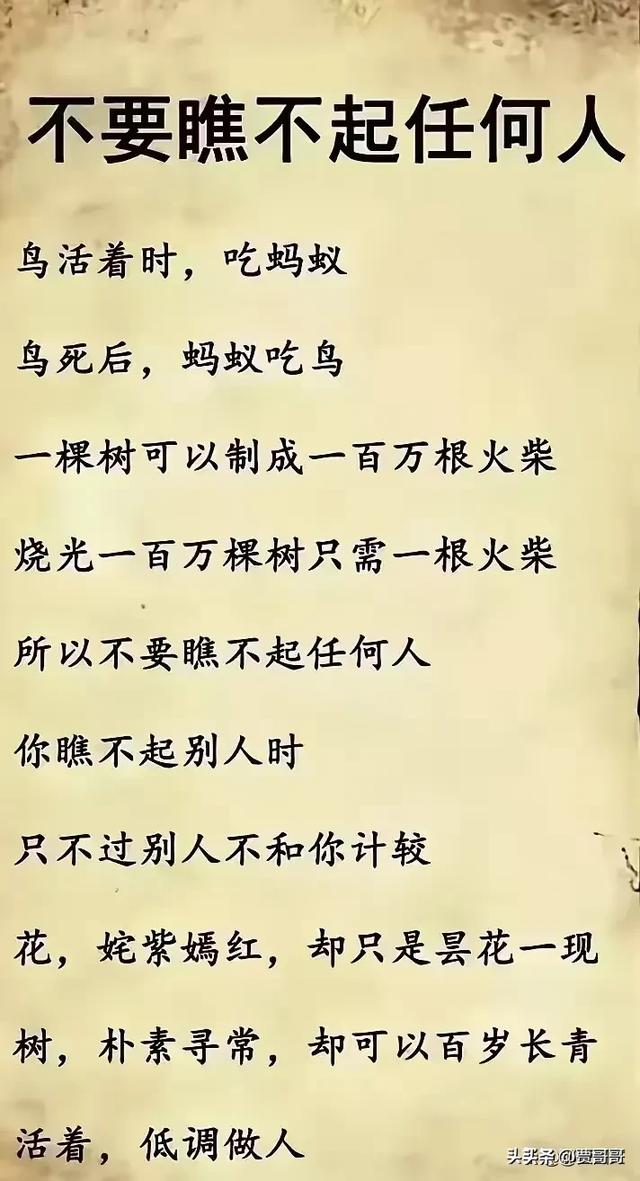 不要瞧不起任何人
鸟活着时，吃蚂蚁
鸟死后，蚂蚁吃鸟
一棵树可以制成一百万根火柴
烧光一百万棵树只需一根火柴
所以不要瞧不起任何人
你瞧不起别人时
只不过别人不和你计较
花，姹紫嫣红，却只是昙花一现
树，朴素寻常，却可以百岁长青
活着，低调做人
头条@贾哥哥